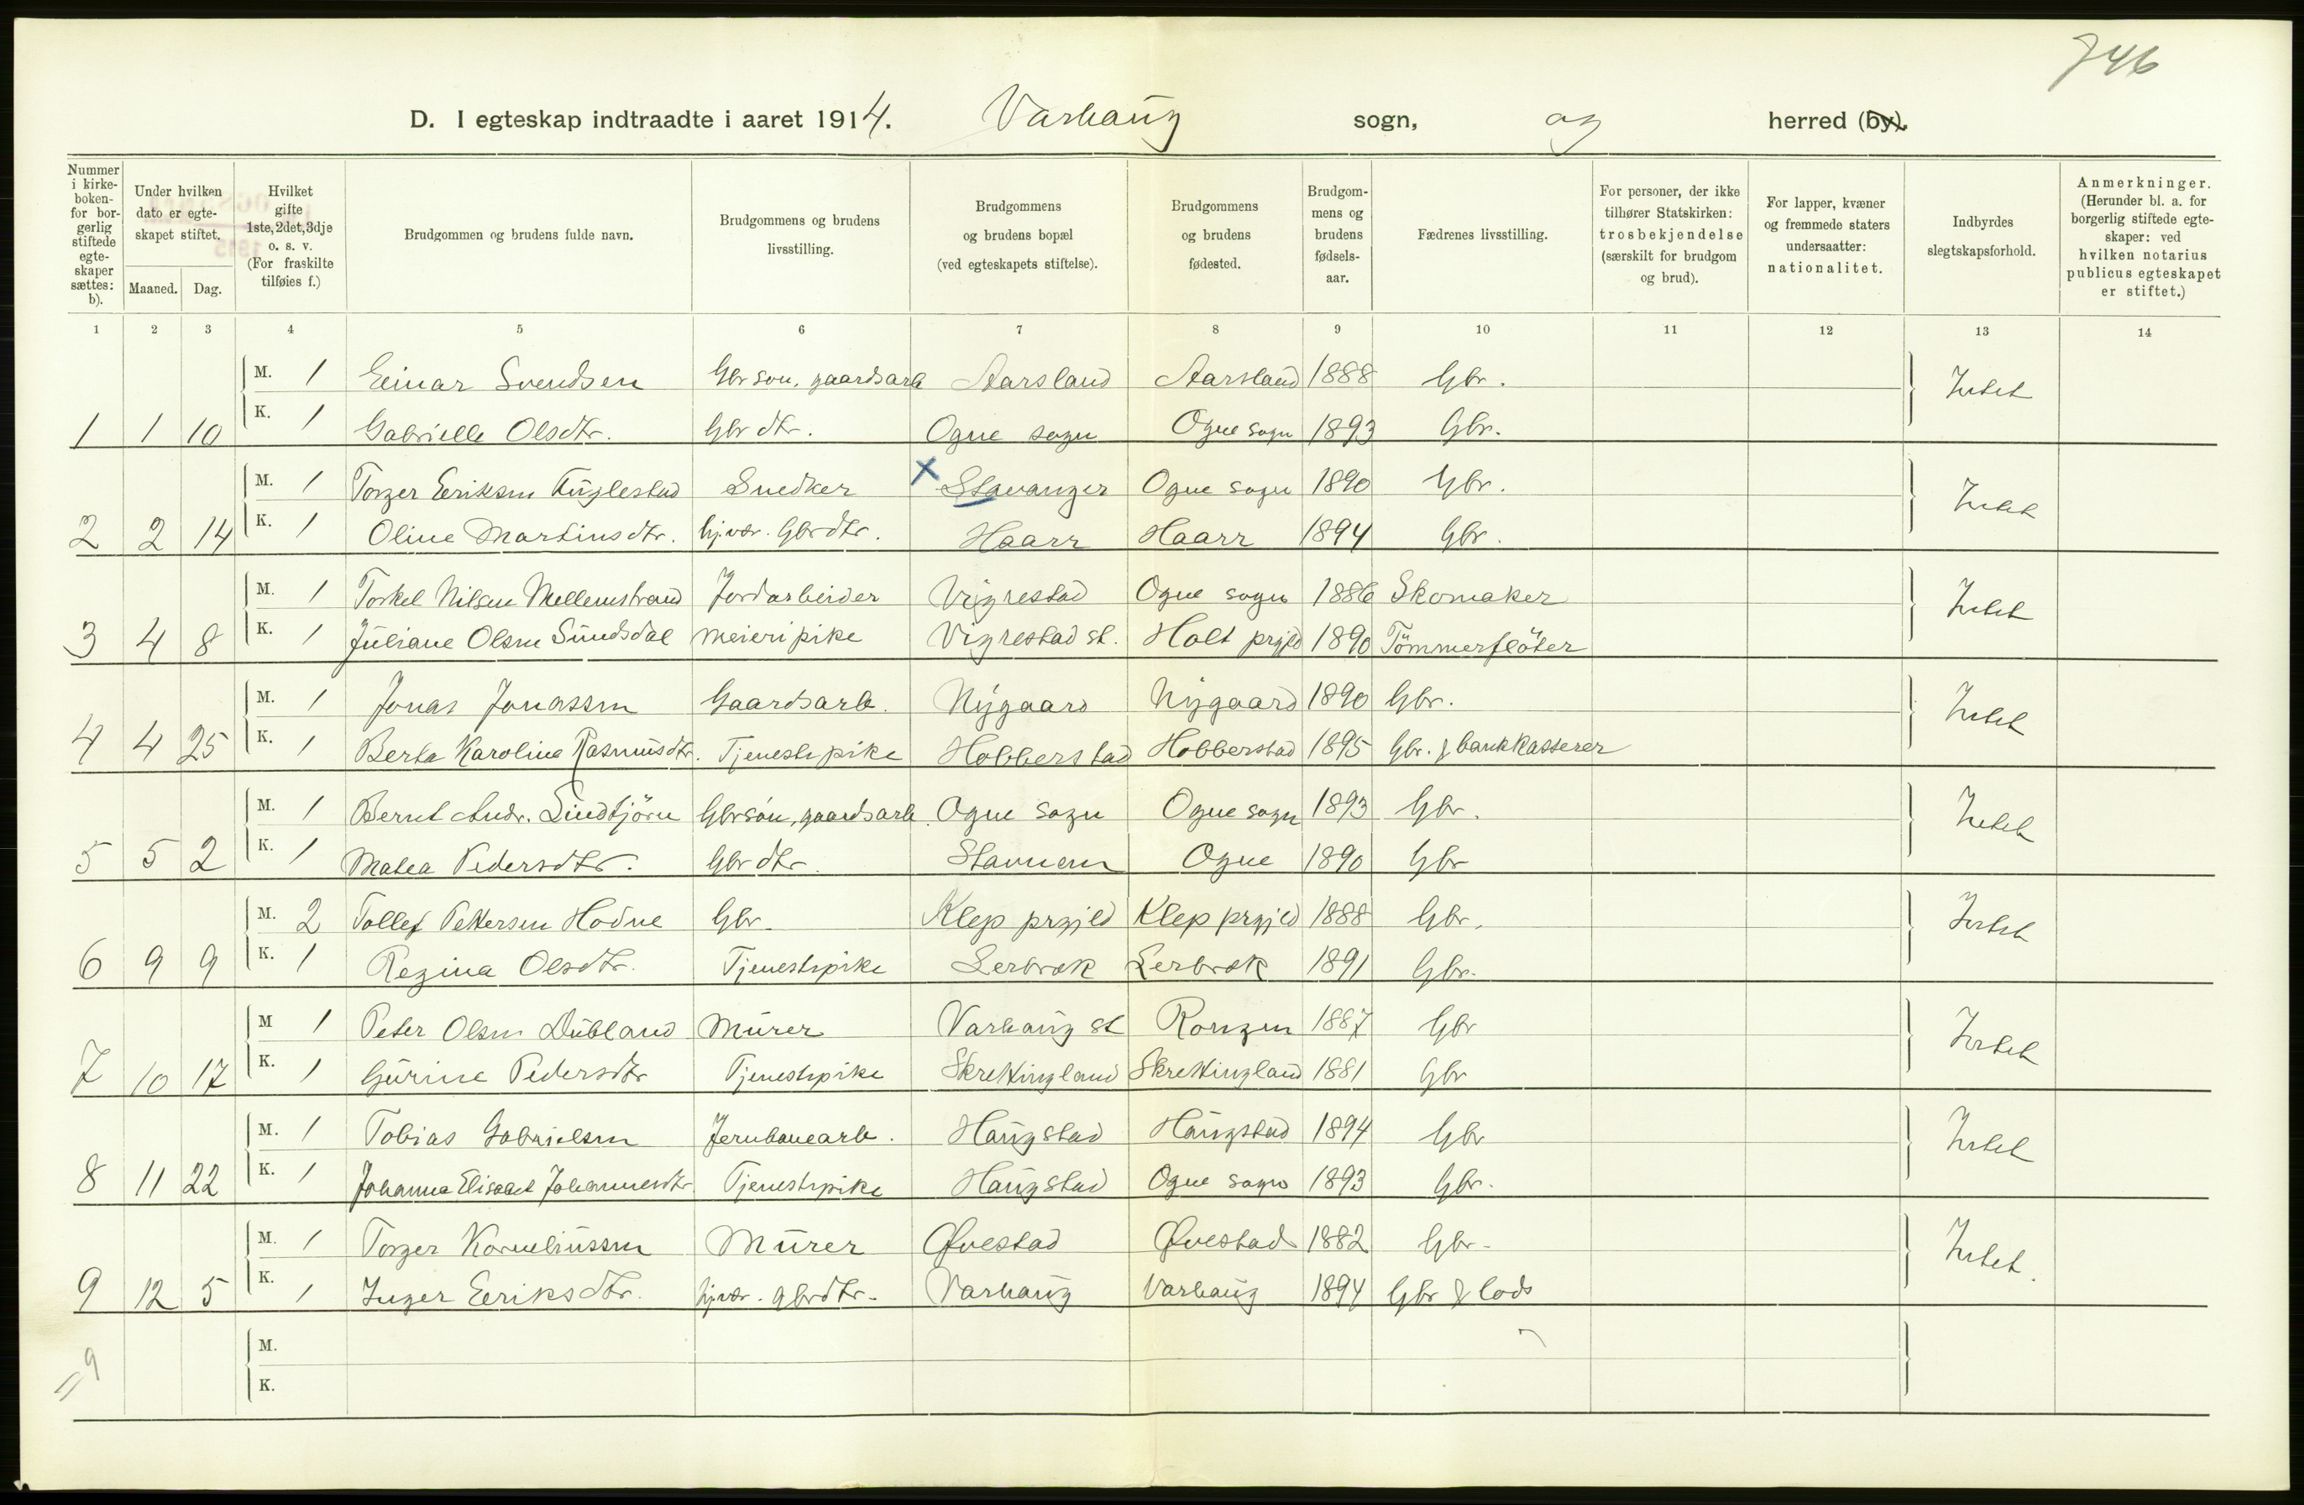 746
D. I egteskap indtraadte i aaret 1914. Varhaug sogn, og herred (by).
Nummer i kirkeboken for borgerlig stiftede egteskaper sættes: b).
Under hvilken dato er egteskapet stiftet.
Maaned. Dag.
Hvilket gifte 1ste, 2det, 3dje o. s. v. (For fraskilte tilføies f.)
Brudgommen og brudens fulde navn.
Brudgommens og brudens livsstilling.
Brudgommens og brudens bopæl (ved egteskapets stiftelse).
Brudgommens og brudens fødested.
Brudgommens og brudens fødselsaar.
Fædrenes livsstilling.
For personer, der ikke tilhører Statskirken: trosbekjendelse (særskilt for brudgom og brud).
For lapper, kvæner og fremmede staters undersaatter: nationalitet.
Indbyrdes slegtskapsforhold.
Anmerkninger. (Herunder bl. a. for borgerlig stiftede egteskaper: ved hvilken notarius publicus egteskapet er stiftet.)
1 2 3 4 5 6 7 8 9 10 11 12 13 14
M. 1 Einar Svendsen Gbrsön, gaardsarb Aarsland Aarsland 1888 Gbr. Intet
1 1 10 K. 1 Gabrielle Olsdtr. Gbrdtr. Ogne sogn Ogne sogn 1893 Gbr.
M. 1 Torger Eriksen Fuglestad Snedker x Stavanger Ogne sogn 1890 Gbr. Intet
2 2 14 K. 1 Oline Martinsdtr. hj.vær. Gbrdtr. Haarr Haarr 1894 Gbr.
M. 1 Torkel Nilsen Mellemstrand Jordarbeider Vigrestad Ogne sogn 1886 Skomaker Intet
3 4 8 K. 1 Juliane Olsen Sundsdal meieripike Vigrestad st. Holt prgjld 1890 Tömmerflöter
M. 1 Jonas Jonassen Gaardsarb. Nygaard Nygaard 1890 Gbr. Intet
4 4 25 K. 1 Berta Karoline Rasmusdtr. Tjenestepike Hobberstad Hobberstad 1895 Gbr. & bankkasserer
M. 1 Bernt Andr. Lindtjörn Gbrsön, gaardsarb. Ogne sogn Ogne sogn 1893 Gbr. Intet
5 5 2 K. 1 Matea Pedersdtr. Gbrdtr. Stavnem Ogne 1890 Gbr
M. 2 Tollef Pettersen Hodne Gbr. Klep prgjld Klep prgjld 1888 Gbr. Intet
6 9 9 K. 1 Regina Olsdtr. Tjenestepike Lerbræk Lerbræk 1891 Gbr.
M 1 Peter Olsen Dubland Murer Varhaug st Rongen 1887 Gbr Intet
7 10 17 K. 1 Gurine Pedersdtr Tjenestepike Skrettingland Skrettingland 1881 Gbr
M. 1 Tobias Gabrielsen Jernbanearb. Haugstad Haugstad 1894 Gbr Intet
8 11 22 K. 1 Johanna Elisabet Johannesdtr. Tjenestepike Haugstad Ogne sogn 1893 Gbr.
M. 1 Torger Korneliussen Murer Qvestad Qvestad 1882 Gbr. Intet.
9 12 5 K. 1 Inger Eeriksdtr. hj.vær. gbrdtr. Varhaug Varhaug 1894 Gbr & lods
M.
= 9 K.